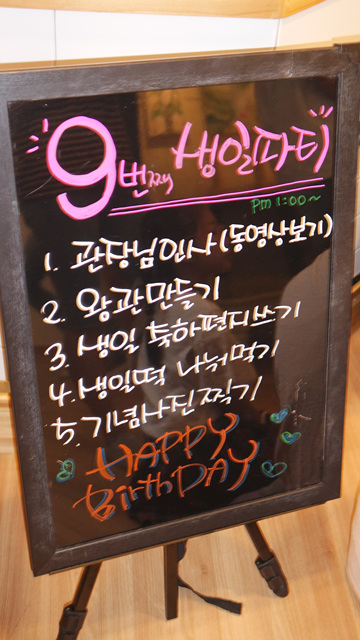 9번째 생일파티
PM 1:00~
1. 관장님인사(동영상보기)
2. 왕관만들기
3. 생일 축하편지쓰기
4. 생일떡 나눠먹기
5. 기념사진찍기
HAPPY
BirthDAY